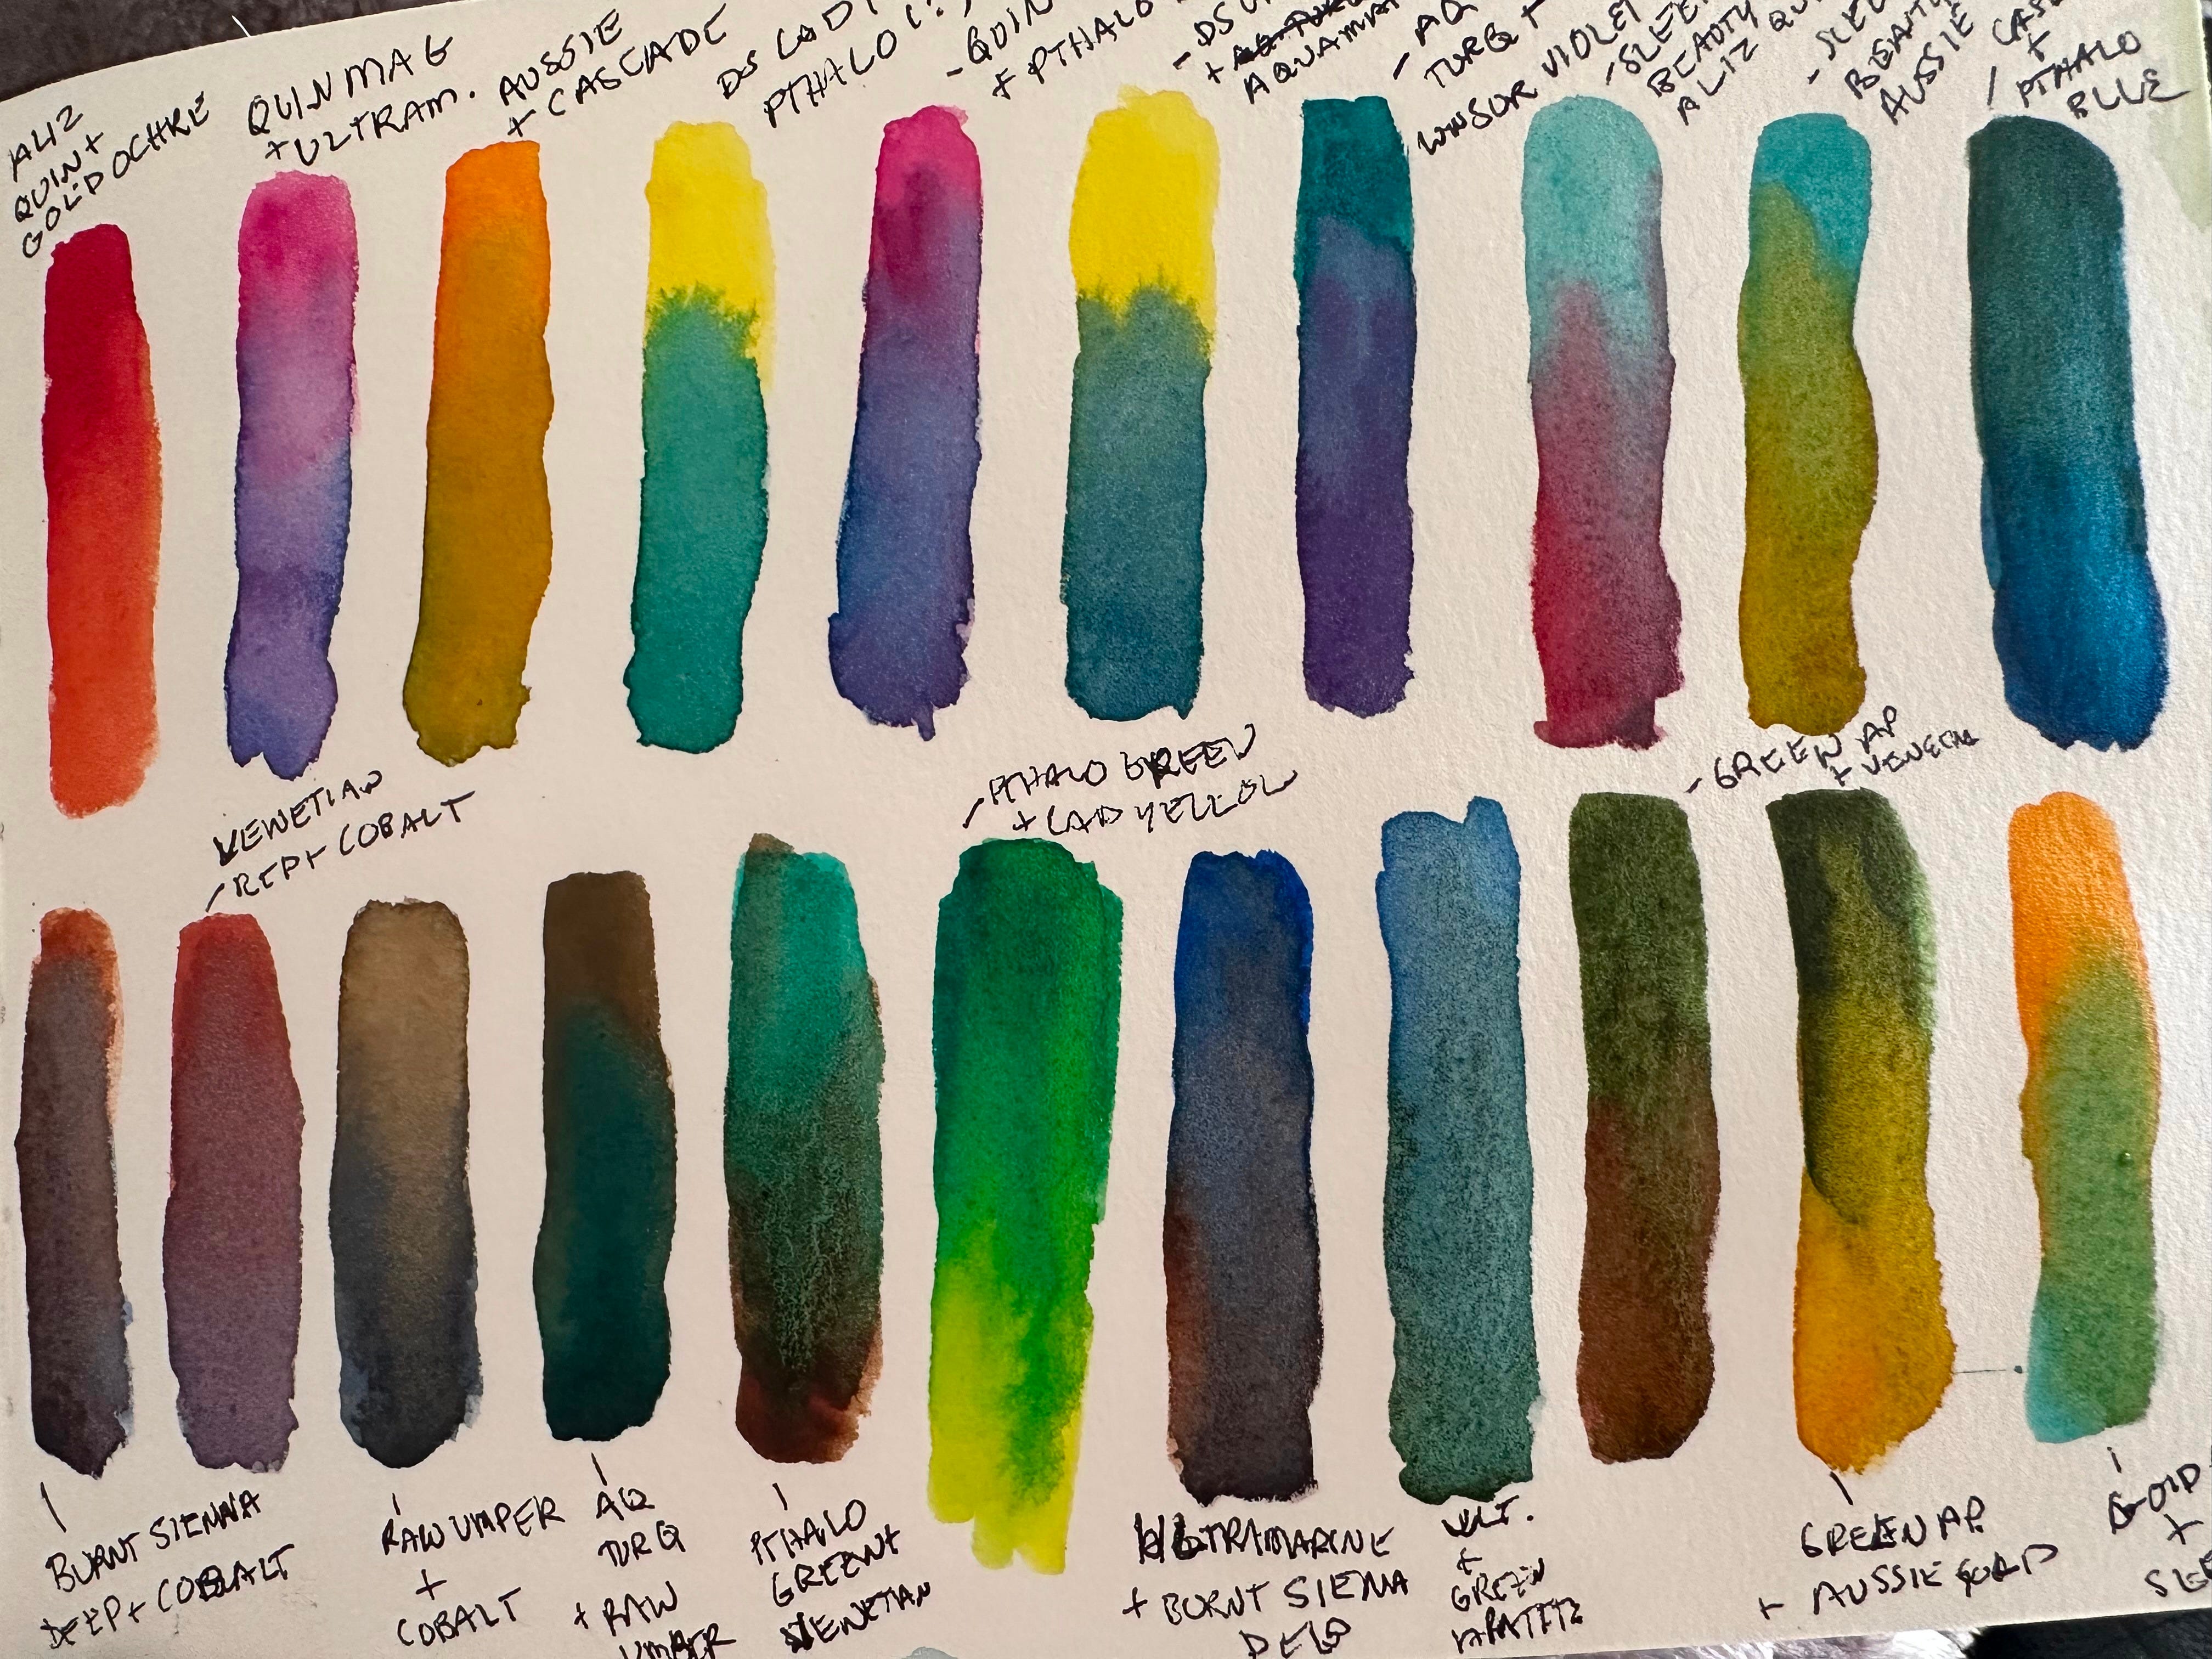 ALIZ
QUIN +
GOLD OCHRE
QUIN MAG
+ ULTRAM.
AUSSIE
+ CASCADE
DS CAD
PTHALO (?)
- QUIN
+ PTHALO
- DS
+
AQUAMA
- AQ
TURQ +
WINSOR VIOLET
- SLEE
BEAUTY
ALIZ QU
- SLE
BEAUT
AUSSIE
CAS
+
PTHALO
BLUE
VENETIAN
- RED + COBALT
- PTHALO GREEN
+ CAD YELLOW
- GREEN AP
+ VENETIA
BURNT SIENNA
DEEP + COBALT
RAW UMPER
+
COBALT
AQ
TURQ
+ RAW
UMBER
PTHALO
GREEN +
VENETIAN
ULTRAMARINE
+ BURNT SIENA
DEEP
ULT.
+
GREEN
APATITE
GREEN AP.
+ AUSSIE GOLD
GOLD
+
SLE